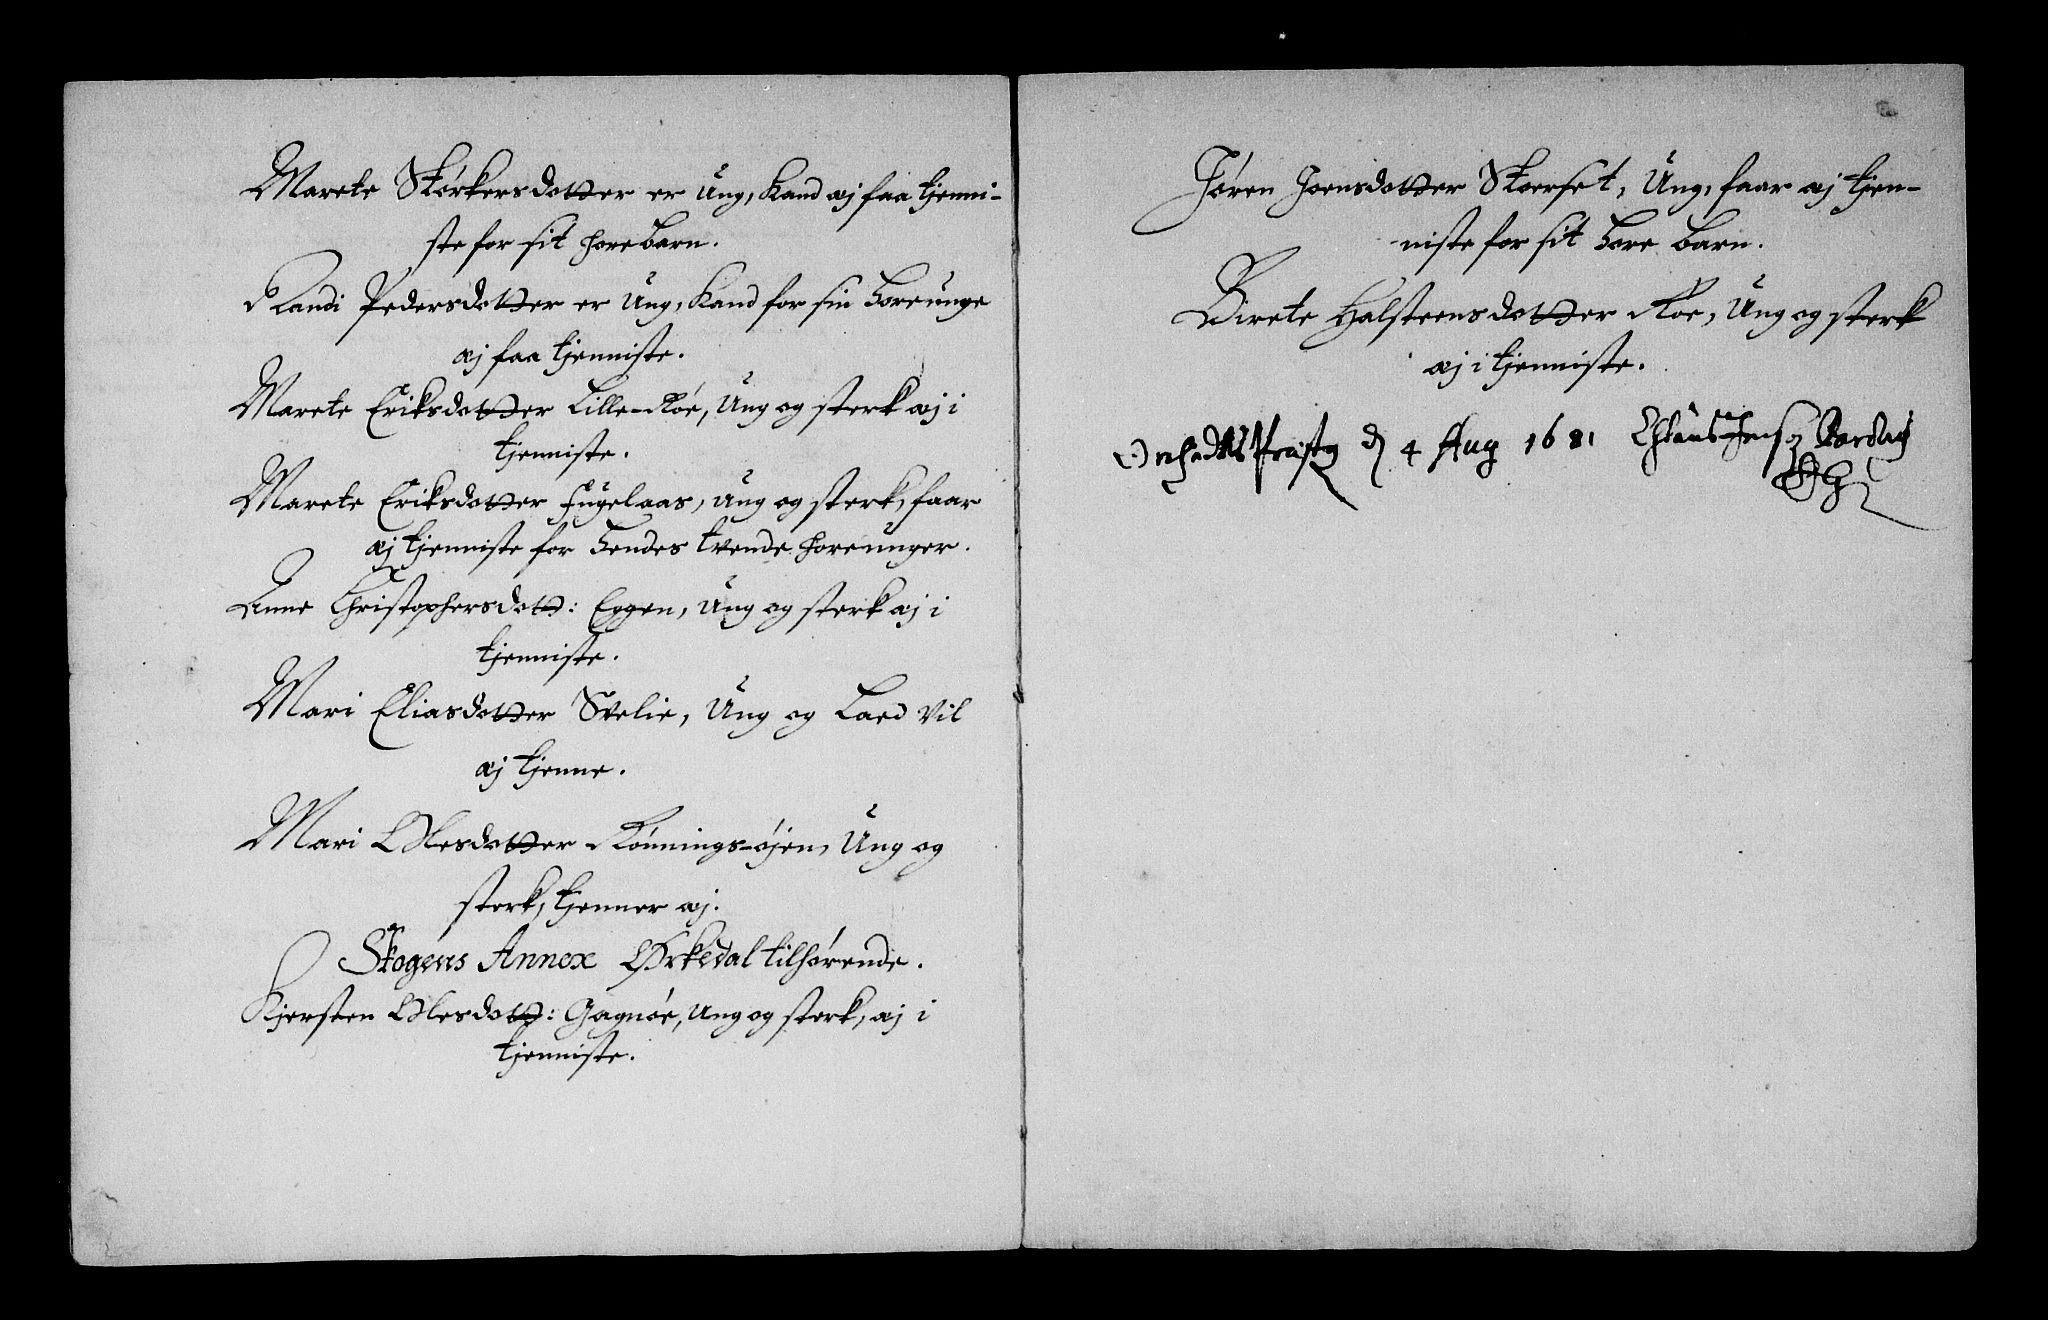 Marete Størkersdotter er Ung, Kand æj faa tjenni-
ste for sit horebarn.
Randi Pedersdotter er Ung, Kand for sin horeunge
æj faa tjenniste.
Marete Eriksdotter Lille-Røe, Ung og sterk æj i
tjenniste.
Marete Eriksdotter Fugelaas, Ung og sterk, faar
æj tjenniste for hendes tvende horeunger.
Anne Christophersdott: Eggen, Ung og sterk æj i
tjenniste.
Mari Eliasdotter Svelie, Ung og Laed vil
æj tjenne.
Mari Olesdotter Rønnings-øjen, Ung og
sterk, tjenner æj.
Skogens Annex Ørkedal tilhørende.
Kjersten Olesdott: Gagnøe, Ung og sterk, æj i
tjenniste.
Jøren Joensdotter Skoerset, Ung, faar æj tjen-
niste for sit hore barn.
Birete Halsteensdotter Roe, Ung og sterk
æj i tjenniste.
Orchedals Præstg d 4 Aug 1681